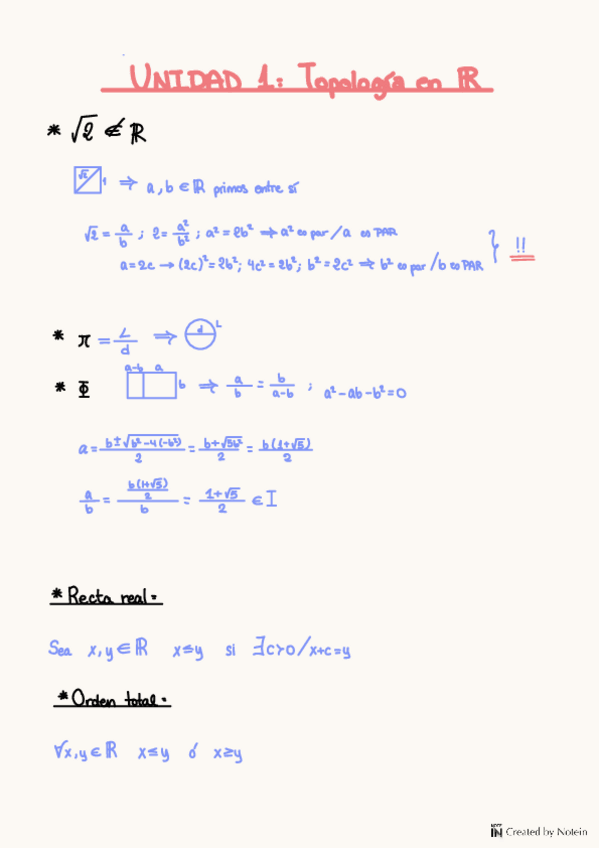 UNIDAD 1: Topología en ℝ
* √2 ∉ ℝ
√2 1 ⇒ a, b ∈ ℝ primos entre sí
√2 = a/b ; 2 = a²/b² ; a² = 2b² ⇒ a² es par / a es PAR
a = 2c → (2c)² = 2b² ; 4c² = 2b² ; b² = 2c² ⇒ b² es par / b es PAR } !!
* π = L/d ⇒ d L
* Φ a-b a b ⇒ a/b = b/(a-b) ; a² - ab - b² = 0
a = (b ± √(b² - 4(-b²)))/2 = (b + √5b²)/2 = b(1+√5)/2
a/b = (b(1+√5)/2)/b = (1+√5)/2 ∈ I
* Recta real.
Sea x, y ∈ ℝ x ≤ y si ∃c>0 / x+c=y
* Orden total.
∀x, y ∈ ℝ x ≤ y ó x ≥ y
NOTE IN Created by Notein